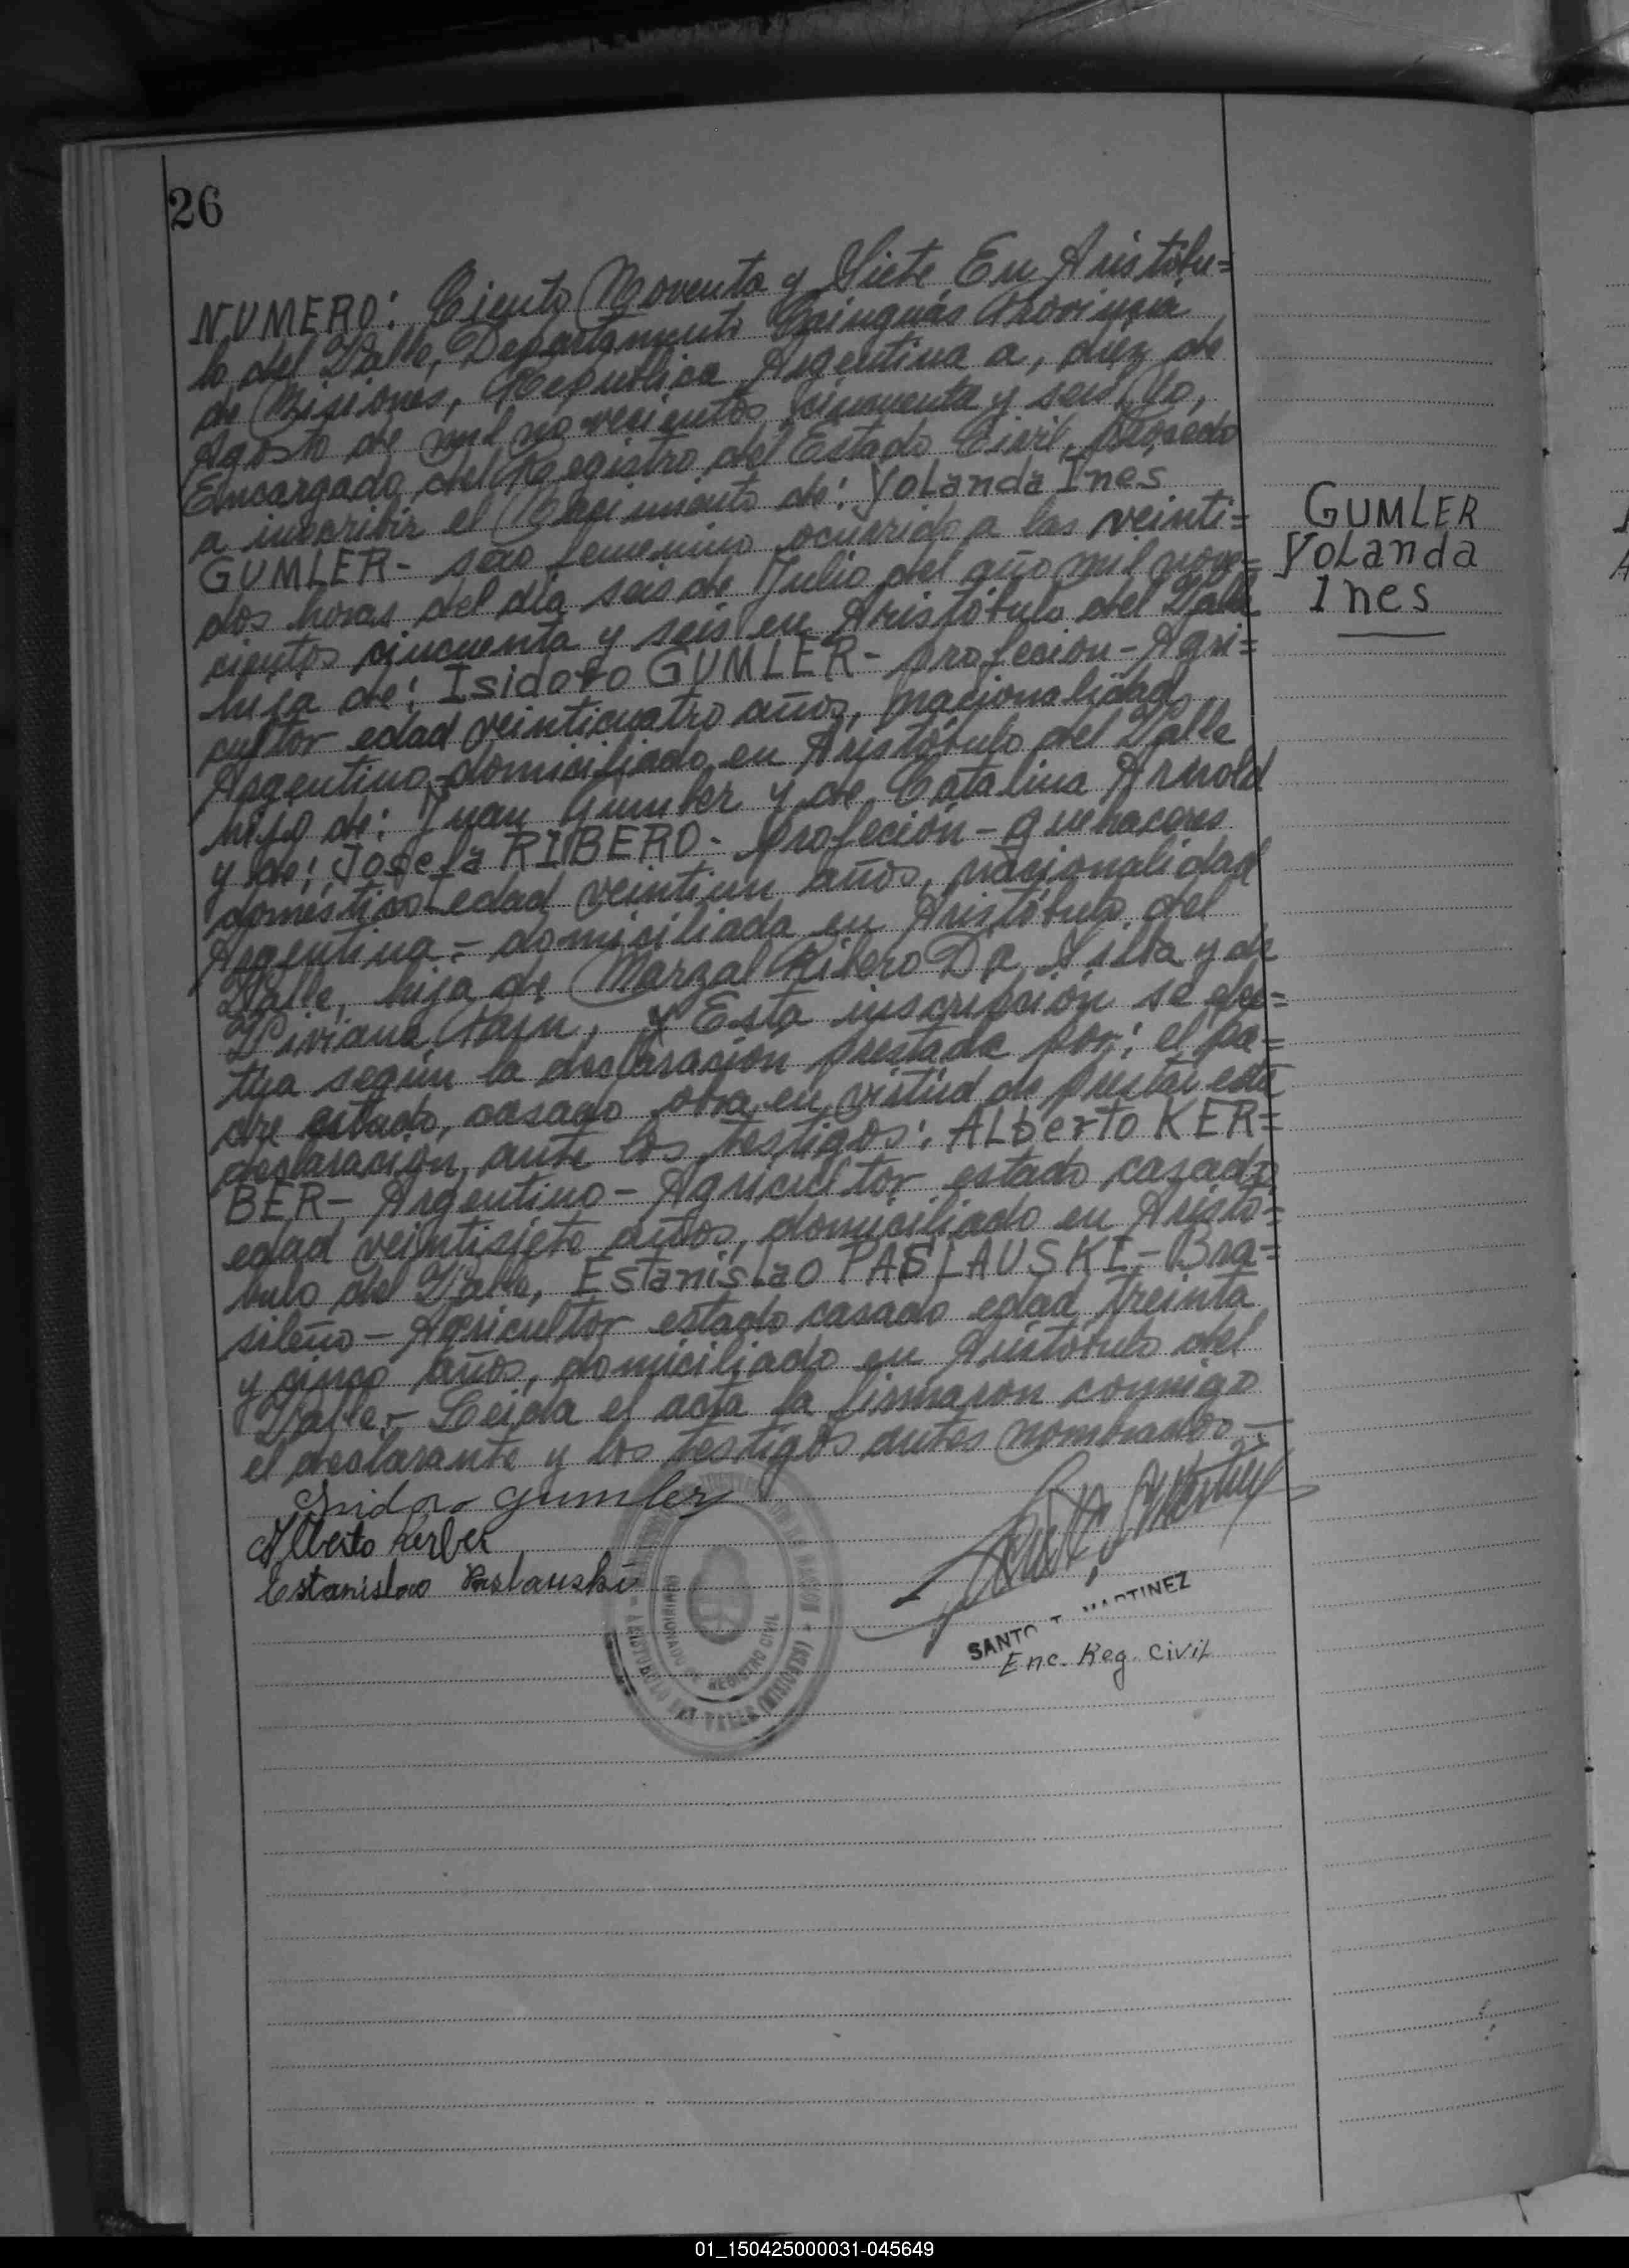 26
NUMERO: Ciento Noventa y Siete. En Aristóbu=
lo del Valle, Departamento Cainguás Provincia
de Misiones, República Argentina a, diez de
Agosto de mil novecientos cincuenta y seis, Yo,
Encargado del Registro del Estado Civil, procedo
a inscribir el Nacimiento de: Yolanda Ines
GUMLER- sexo femenino ocurrido a las veinti=
dos horas del día seis de Julio del año mil nove=
cientos cincuenta y seis en Aristóbulo del Valle
hija de: Isidoro GUMLER- profeción-Agri=
cultor edad veinticuatro años, nacionalidad
Argentino-domiciliado en Aristóbulo del Valle
hijo de: Juan Gumler y de Catalina Arnold
y de: Josefa RIBERO- profeción-quehaceres
domésticos-edad veintiun años, nacionalidad
Argentina-domiciliada en Aristóbulo del
Valle, hija de Marzal Ribero Da Silba y de
Viviana, Esta inscripción se efec=
tua según la declaración prestada por: el pa=
dre estado, casado obra en virtud de prestar esta
declaración, ante los testigos: ALberto KER=
BER- Argentino-Agricultor estado casado
edad veintisiete años, domiciliado en Aristó=
bulo del Valle, EstanisLao PASLAUSKI-Bra=
sileño-Agricultor estado casado edad treinta
y cinco años, domiciliado en Aristóbulo del
Valle.- Leida el acta la firmaron conmigo
el declarante y los testigos antes nombrados.-
Isidoro Gumler
Alberto Kerber
Estanislao Paslauski
SANTO T. MARTINEZ
Enc. Reg. Civil
REGISTRO CIVIL
ARISTOBULO DEL VALLE (MISIONES)
GUMLER
YoLanda
Ines
01_150425000031-045649